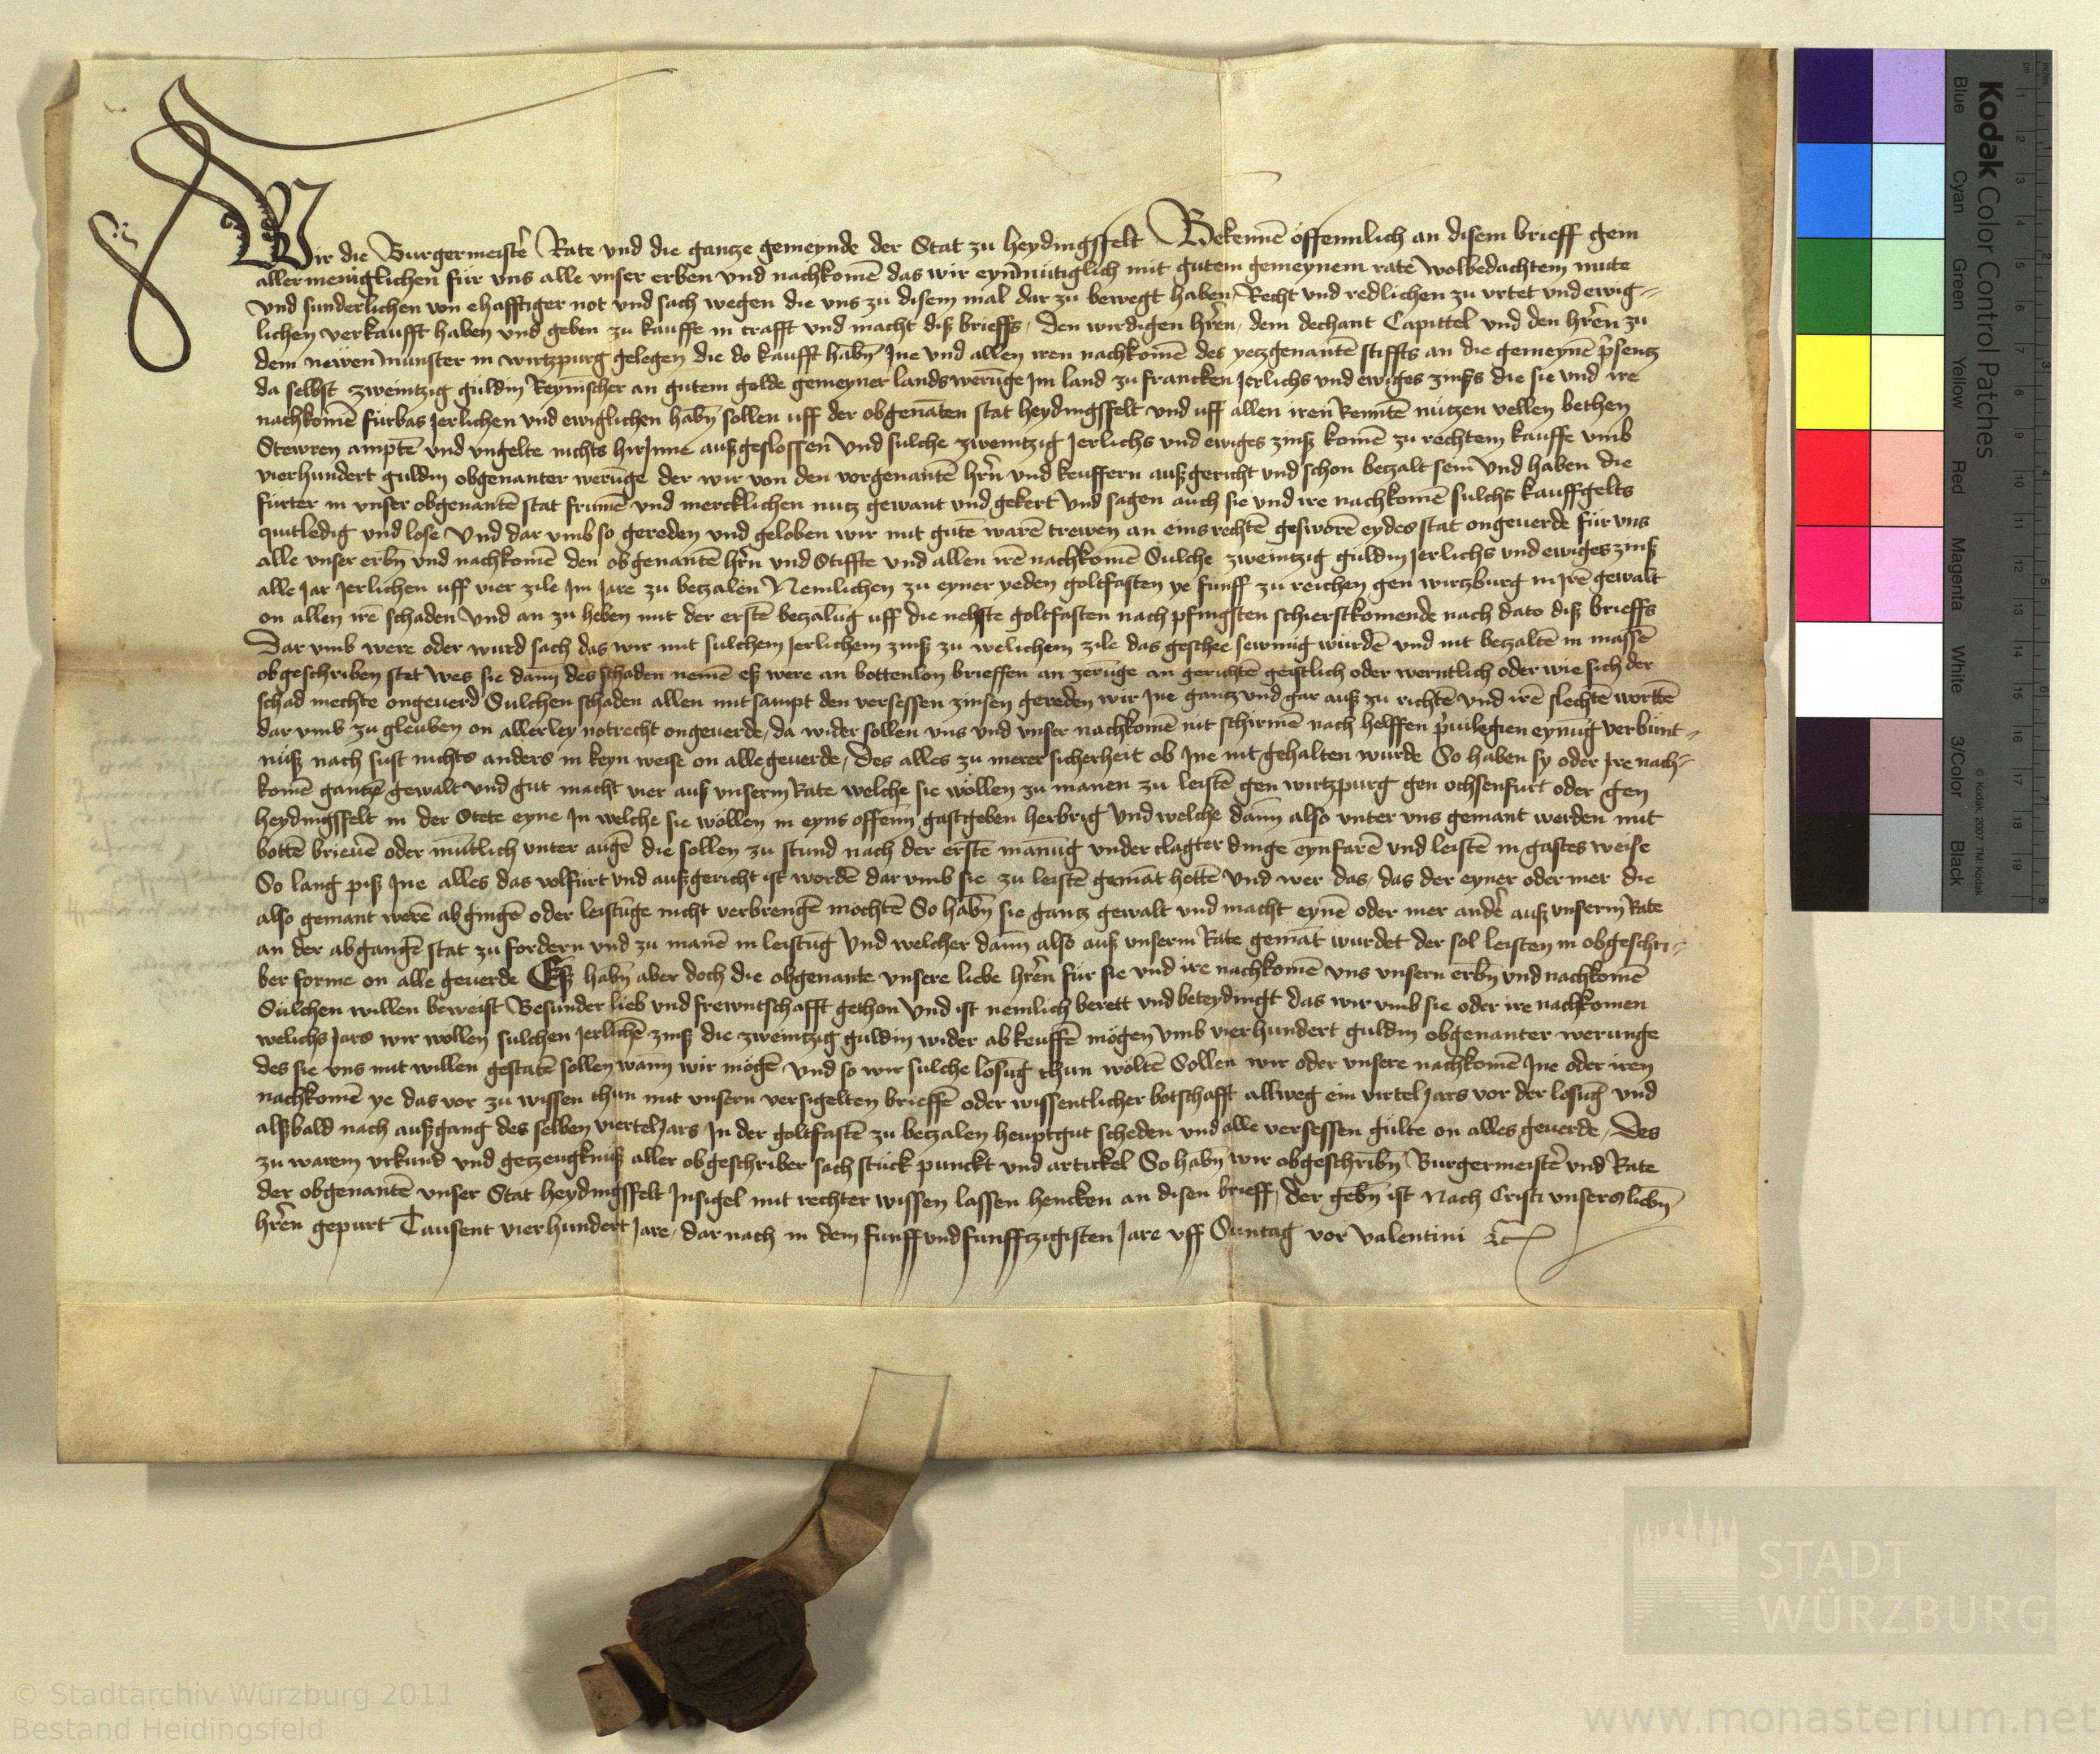 Wir die Burgermeist̄ Rate vnd die gantze gemeynde der Stat zu heydingsfelt Bekennē öffennlich an disem brieff gem
allermeniglichen für vns alle vnser erben vnd nachkomē das wir eynmütiglich mit gutem gemeynem rate wolbedachtem mute
vnd sunderlichen von ehafftiger not vnd sach wegen die vns zu disem mal dar zu bewegt haben Recht vnd redlichen zu vrtet vnd ewig-
lichen verkaufft haben vnd geben zu kauffe in crafft vnd macht diß brieffs, Den wirdigen hrēn, dem dechant Capittel vnd den hrēn zu
dem newen munster in wirtzpurg gelegen die do kaufft habn̄ Jne vnd allen iren nachkomē des yetzgenantē stiffts an die gemeynē p̄sentz
da selbst zweintzig guldin Reynischer an gutem golde gemeyner landswerūge Jm land zu francken Jerlichs vnd ewiges zinß die sie vnd ire
nachkomē fürbas Jerlichen vnd ewiglichen habn̄ sollen uff der obgenāten stat heydingsfelt vnd uff allen iren Renntē nutzen vellen bethen
Stewren amptē vnd vngelte nichts hirJnne außgeslossen Vnd sulche zweintzig Jerlichs vnd ewiges zinß komē zu rechtem kauffe vmb
vierhundert guldin obgenanter werūge der wir von den vorgenantē hrn̄ vnd keuffern außgericht vnd schon betzalt sein Vnd haben die
fürter in vnser obgenantē stat frumē vnd mercklichen nutz gewant vnd gekert Vnd sagen auch sie vnd ire nachkomē sulchs kauffgelts
quitledig vnd lose Vnd dar vmb so gereden vnd geloben wir mit gutē warē trewen an eins rechtē gesworē eydes stat ongeuerde für vns
alle vnser erbn̄ vnd nachkomē den obgenantē hrn̄ vnd Stiffte vnd allen irē nachkomē Sulche zweintzig guldin Jerlichs vnd ewiges zinß
alle Jar Jerlichen uff vier zile Jm Jare zu betzalen Nemlichen zu eyner yeden goltfasten ye funff zu reichen gen wirtzburg in Jrē gewalt
on allen irē schaden Vnd an zu heben mit der erstē betzalūg uff die nehste goltfasten nach pfingsten schierstkomende nach dato diß brieffs
Dar vmb were oder wurd sach das wir mit sulchem Jerlichem zinß zu welichem zile das geschee sewmig würdē vnd nit betzaltē in massē
obgeschriben stet wes sie dann des schaden nemē eß were an bottenlon brieffen an zerūge an gerichtē geistlich oder werntlich oder wie sich der
schad mechte ongeuerd Sulchen schaden allen mitsampt den versessen zinsen gereden wir Jne gantz vnd gar auß zu richtē vnd irē slechtē wortē
dar vmb zu gleuben on allerley notrecht ongeuerde, da wider sollen vns vnd vnser nachkomē nit schirmē nach helffen p̄uilegien eynūg verbunt-
nuß nach sust nichts anders in keyn weise on alle geuerde, Des alles zu merer sicherheit ob Jne nit gehalten wurde So haben sy oder Jre nach-
komē gantzē gewalt vnd gut macht vier auß vnserm Rate welche sie wöllen zu manen zu leistē gen wirtzpurg gen ochsenfurt oder gen
heydingsfelt in der Stete eyne Jn welche sie wöllen in eyns offenn gastgeben herbrig Vnd welche dann also vnter vns gemant werden mit
bottē brieuē oder mūtlich vnter augē die sollen zu stund nach der erstē manūg vnder clagter dinge eynfarē vnd leistē in gastes weise
So lang piß Jne alles das volfurt vnd außgericht ist wordē dar vmb sie zu leistē gemāt hettē Vnd wer das, das der eyner oder mer die
also gemant werē abgingē oder leistūge nicht verbrengē mochtē So habn̄ sie gantz gewalt vnd macht eynē oder mer andē auß vnserm Rate
an der abgangē stat zu fordern vnd zu manē in leistūg Vnd welcher dann also auß vnserm Rate gemāt wurdet der sol leisten in obgeschri-
ber forme on alle geuerde Eß habn̄ aber doch die obgenante vnsere liebe hrēn für sie vnd ire nachkomē vns vnsern erbn̄ vnd nachkomē
Sulchen willen beweist Besunder lieb vnd frewntschafft gethon Vnd ist nemlich berett vnd beteydingt das wir vmb sie oder ire nachkomen
welichs Jars wir wollen sulchen Jerlichē zinß die zweintzig guldin wider ab keuffē mögen vmb vierhundert guldin obgenanter werunge
des sie vns mit willen gestatē sollen wann wir mögē Vnd so wir sulche losūg thun wöltē Sollen wir oder vnsere nachkomē Jne oder iren
nachkomē ye das vor zu wissen thun mit vnsern versigelten brieffē oder wissentlicher botschafft allweg ein virtel Jars vor der losūg vnd
alßbald nach außgang des selben viertelJars Jn der goltfastē zu betzalen heuptgut scheden vnd alle versessen gülte on alles geuerde, Des
zu warem vrkund vnd getzeugknuß aller obgeschriber sach stuck punckt vnd artickel So habn̄ wir obgeschribn̄ Burgermeistē vnd Rate
der obgenantē vnser Stat heydingsfelt Jnsigel mit rechter wissen lassen hencken an disen brieff, der gebn̄ ist Nach Cristi vnsers liebn̄
hrēn gepurt Tausent vierhundert Jare, dar nach in dem funff vnd funfftzigisten Jare vff Suntag vor Valentini
Kodak Color Control Patches
Blue Cyan Green Yellow Red Magenta White 3/Color Black
© Kodak, 2007 TM: Kodak
STADT
WÜRZBURG
© Stadtarchiv Würzburg 2011
Bestand Heidingsfeld
www.monasterium.net